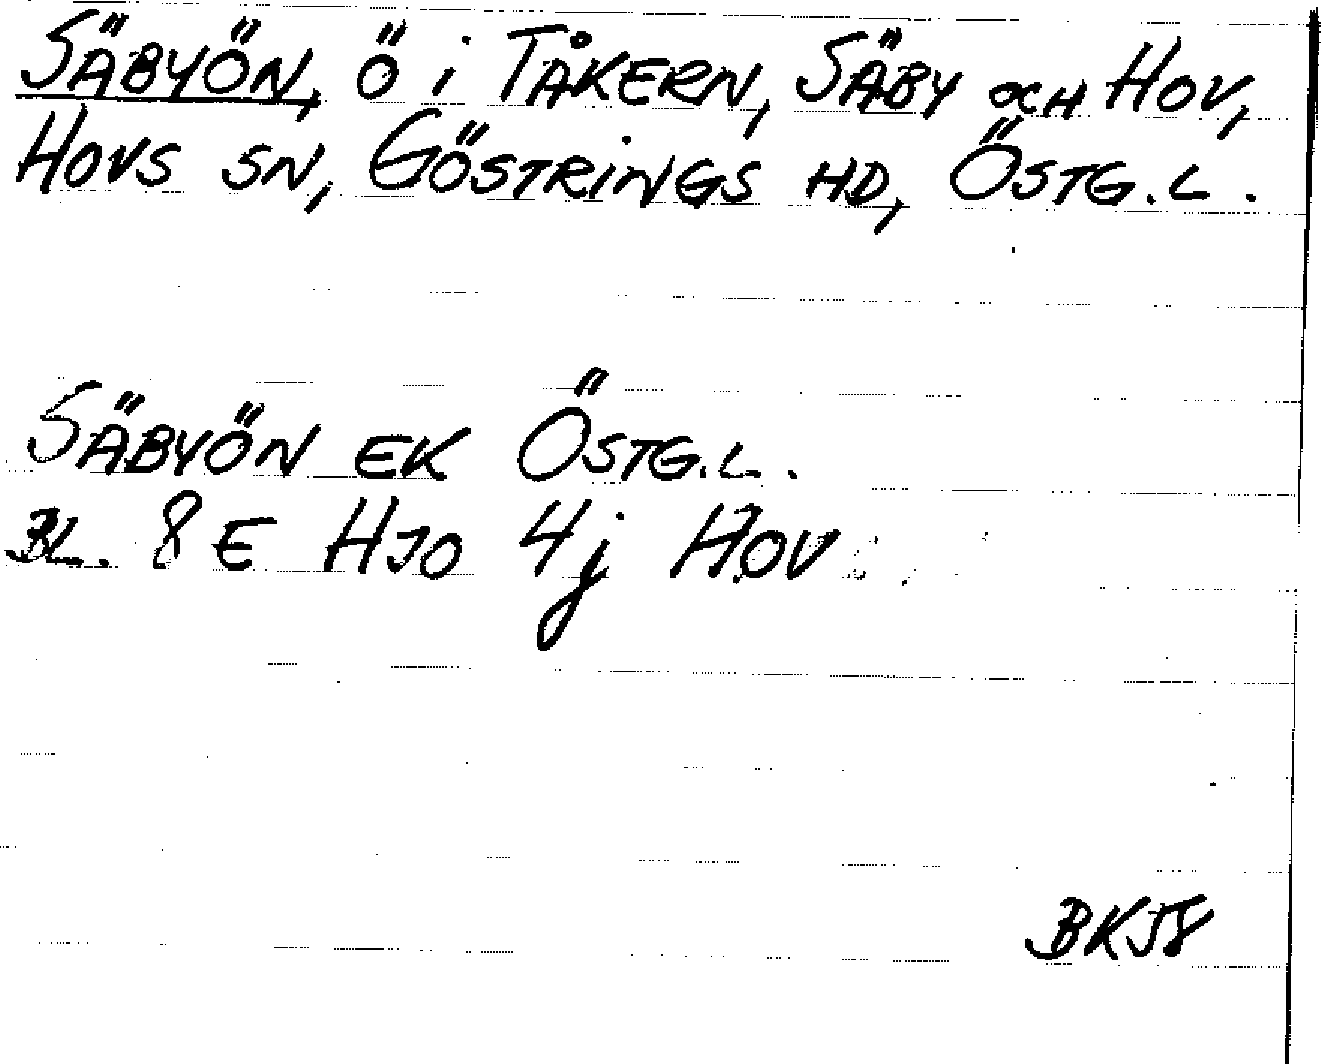 SÄBYÖN, Ö i TÅKERN, SÄBY OCH HOV,
HOVS SN, GÖSTRINGS HD, ÖSTG.L.
SÄBYÖN EK ÖSTG.L.
BL. 8 E HJO 4j HOV